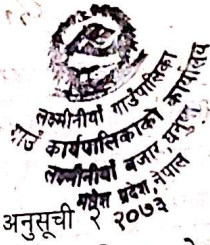 लक्ष्मीनीयाँ गाउँपालिका
गाउँ कार्यपालिकाको कार्यालय
लक्ष्मीनीयाँ बजार, धनुषा
मधेश प्रदेश, नेपाल
२०७३
अनुसूची २